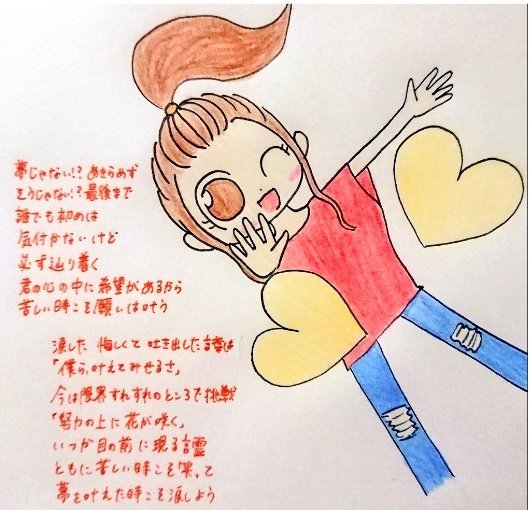 夢じゃない!?あきらめず
そうじゃない!?最後まで
誰でも初めは
気付かないけど
必ず辿り着く
君の心の中に希望があるから
苦しい時こそ願いは叶う
涙した 悔しくて吐き出した言葉は
「僕ら、叶えてみせるさ」
今は限界すれすれのところで挑戦
「努力の上に花が咲く」
いつか目の前に現る言霊
ともに苦しい時こそ笑って
夢を叶えた時こそ涙しよう